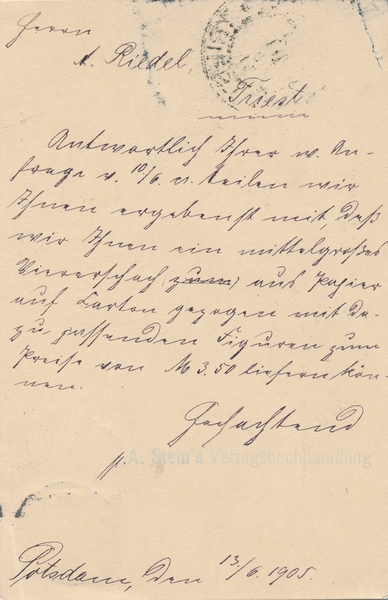 Herrn
A. Riedel,
Triest
Antwortlich Ihrer w. An-
frage v. 10/6. cr. teilen wir
Ihnen ergebenst mit, daß
wir Ihnen ein mittelgroßes
Viererschach, (zum) aus Papier
auf Carton gezogen mit da-
zu passenden Figuren zum
Preise von M 3.50 liefern kön-
nen.
Hochachtend
A. Stein's Verlagsbuchhandlung
Potsdam, den 13/6. 1905.